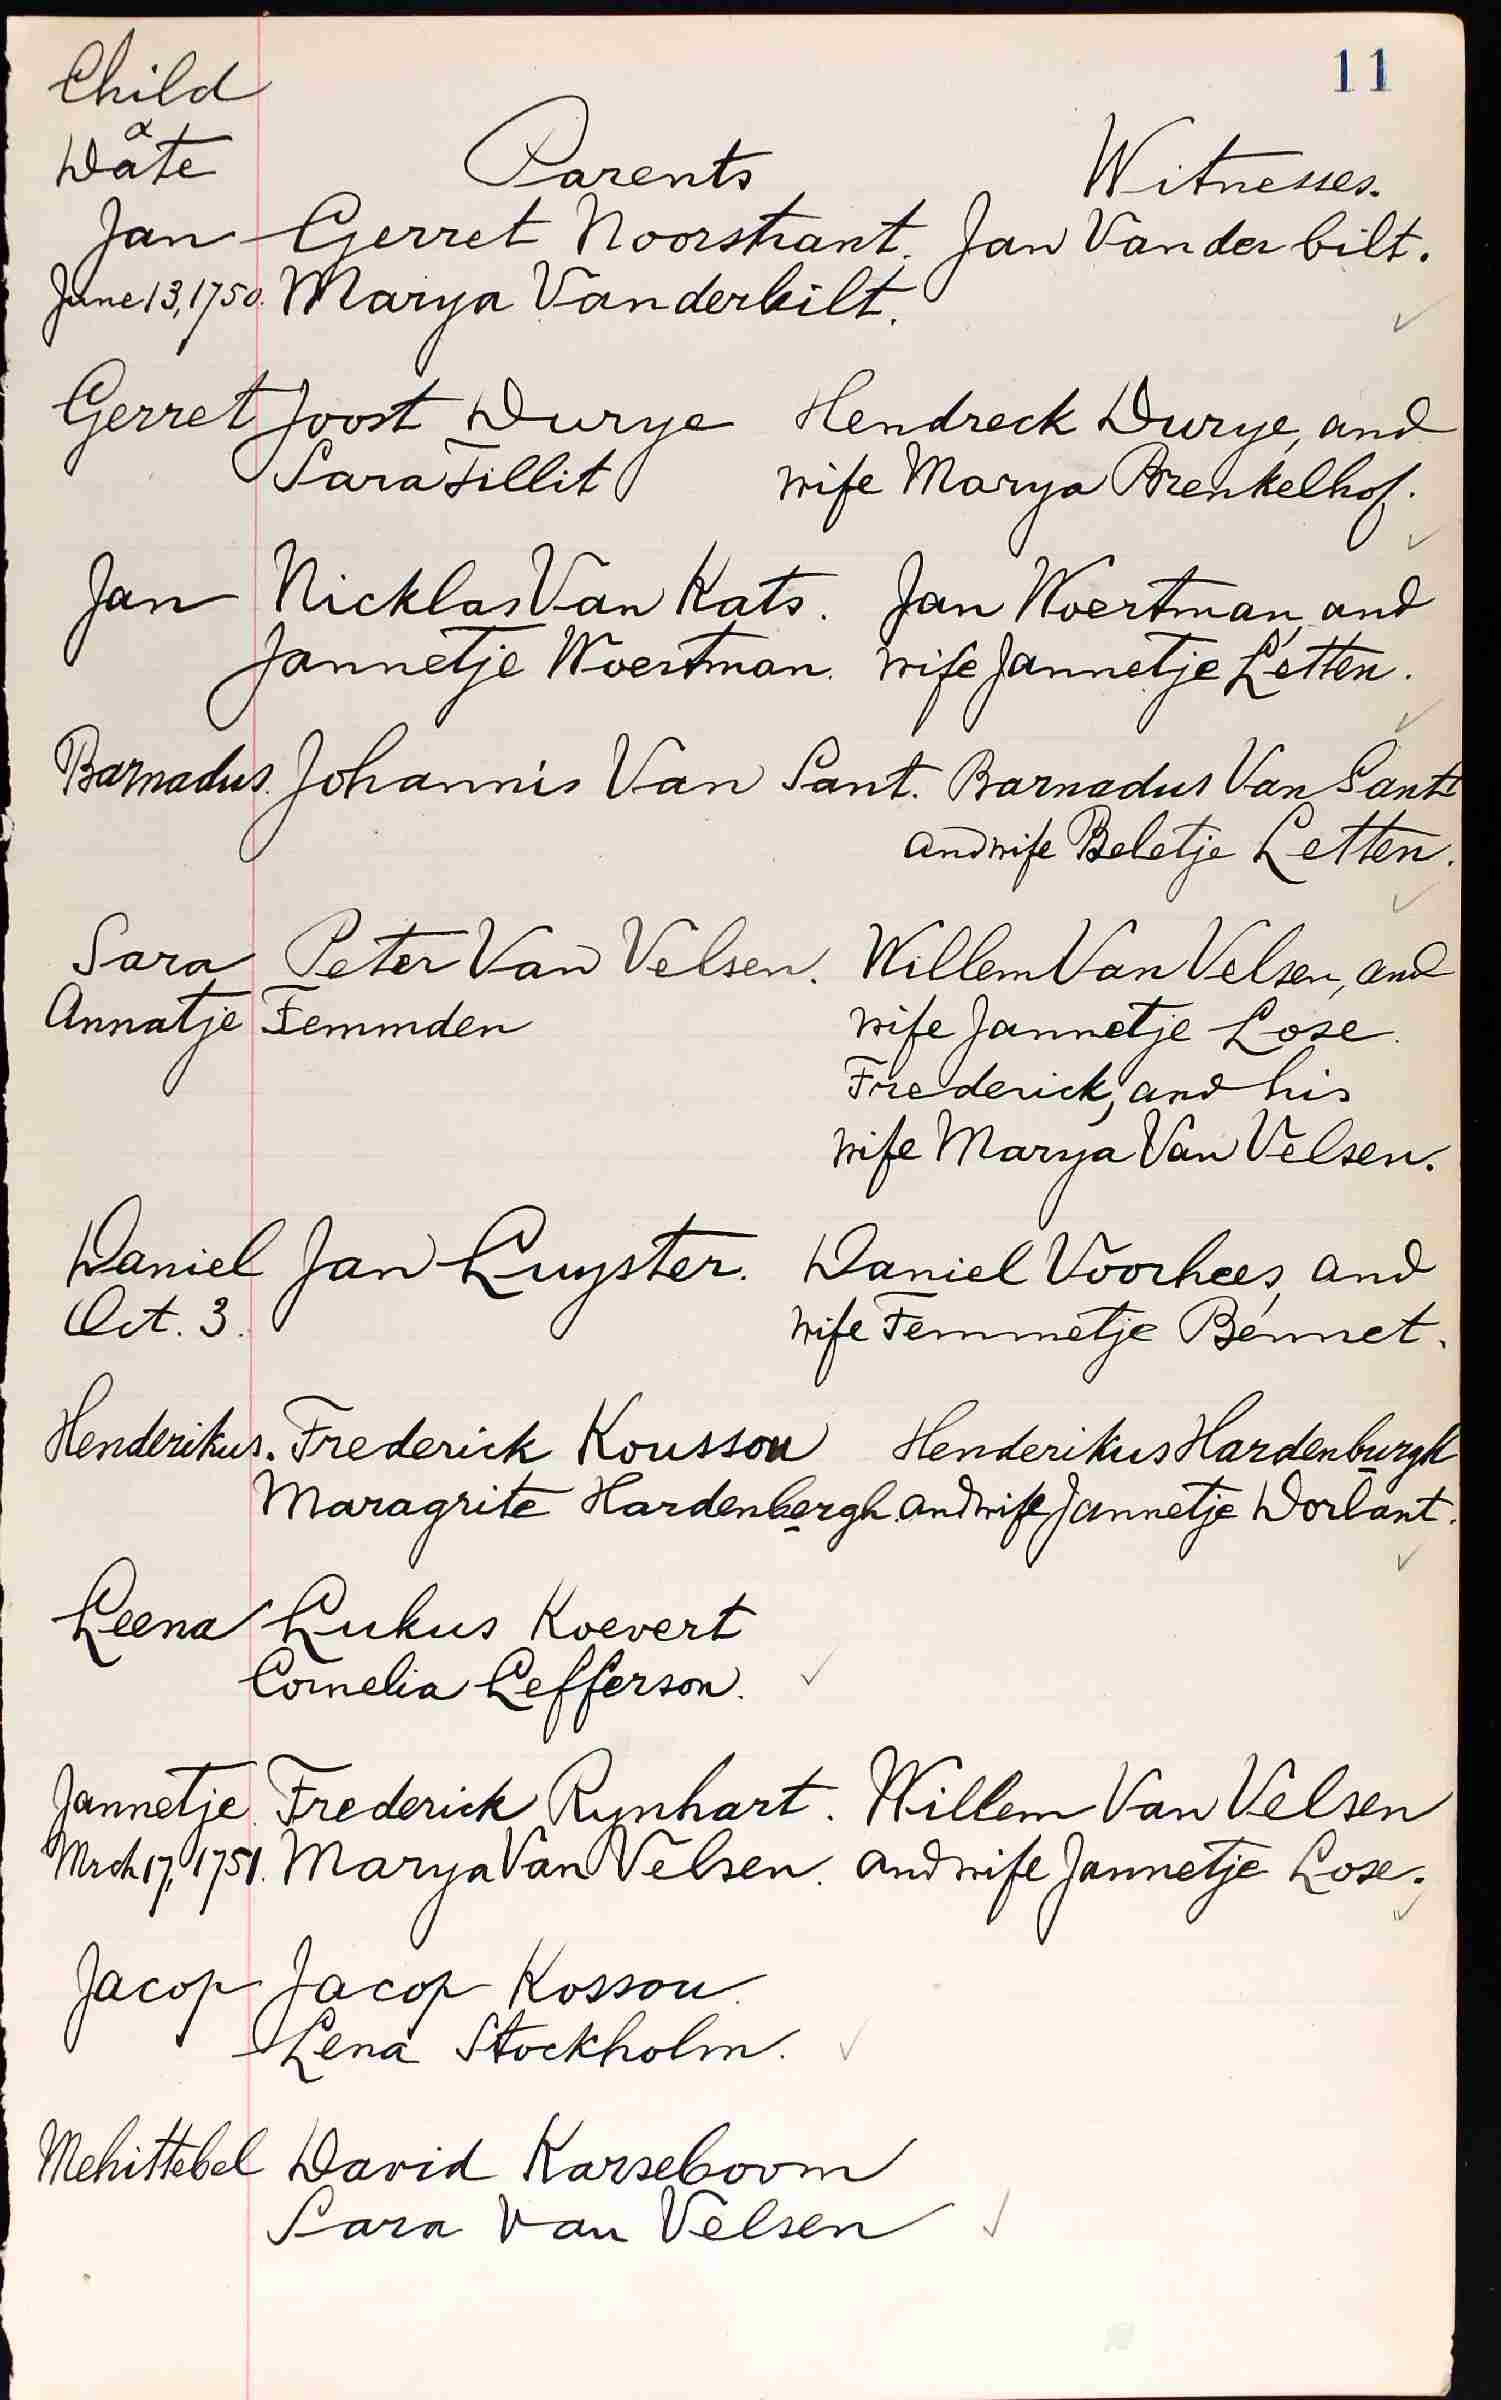 11
Child
&
Date Parents Witnesses.
Jan Gerret Noorstrant. Jan Vander bilt.
June 13, 1750. Marya Vanderbilt.
Gerret Joost Durye Hendreck Durye, and
Sara Tillit wife Marya Brenkelhof.
Jan Nicklas Van Kats. Jan Woertman, and
Jannetje Woertman. wife Jannetje Letten.
Barnadus. Johannis Van Sant. Barnadus Van Sant
and wife Beletje Letten.
Sara Peter Van Velsen. Willem Van Velsen, and
Annatje Femmden wife Jannetje Lose.
Frederick, and his
wife Marya Van Velsen.
Daniel Jan Luyster. Daniel Voorhees, and
Oct. 3. wife Femmetje Bennet.
Henderikus. Frederick Koussou Henderikus Hardenburgh
Maragrite Hardenbergh. and wife Jannetje Dorlant.
Leena Lukus Koevert
Cornelia Lefferson.
Jannetje Frederick Rynhart. Willem Van Velsen
Mrch 17, 1751. Marya Van Velsen. and wife Jannetje Lose.
Jacop Jacop Kossou.
Lena Stockholm.
Mehittebel David Karseboom
Sara Van Velsen